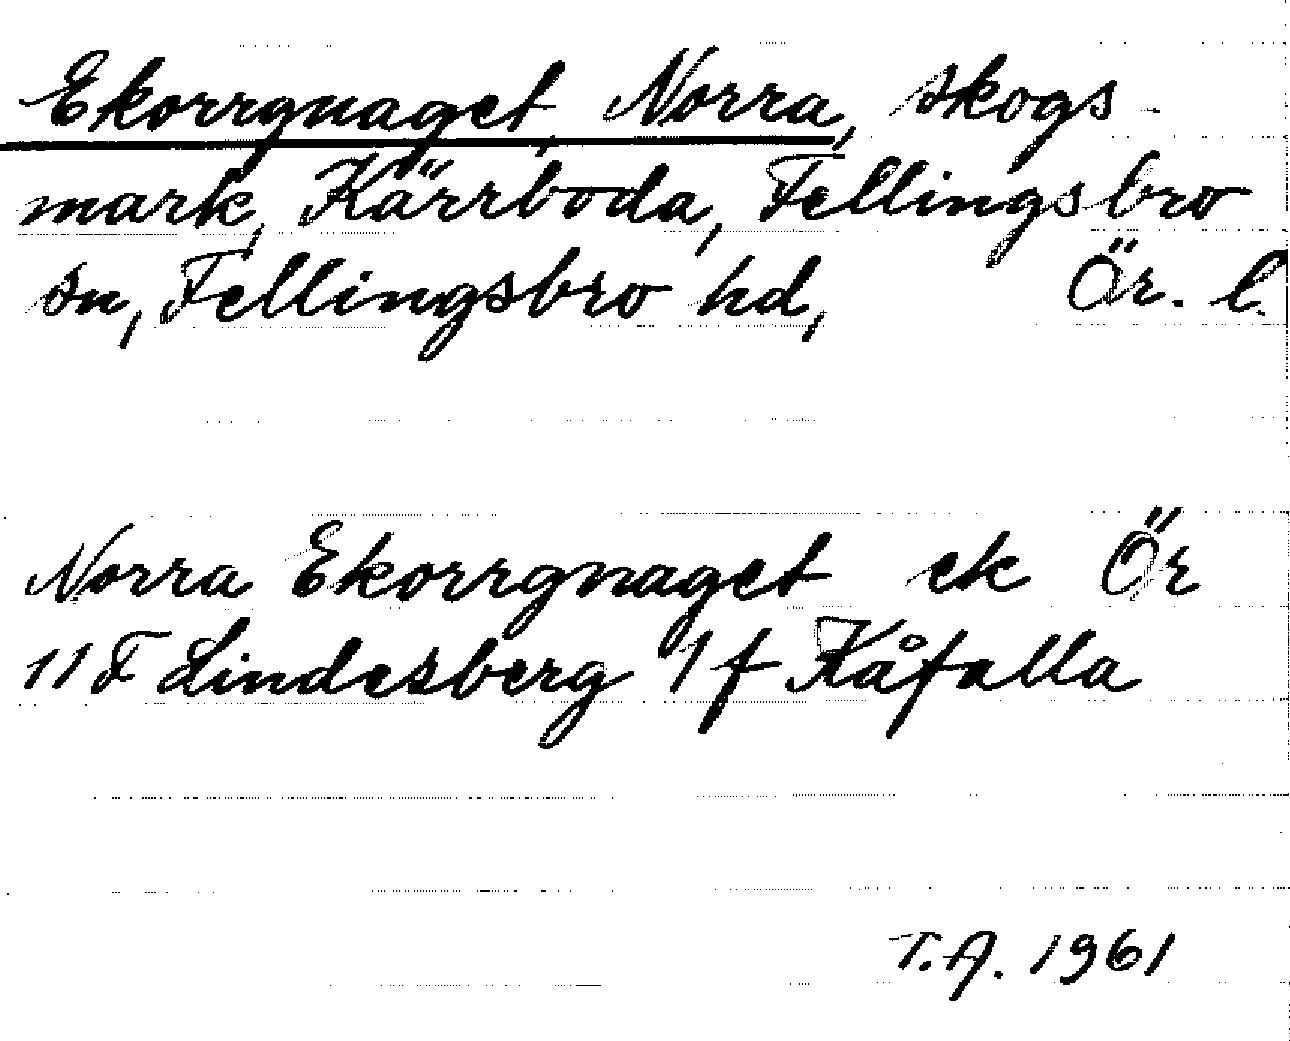 Ekorrgnaget, Norra, skogs-
mark, Kärrboda, Fellingsbro
sn, Fellingsbro hd, Ör. l.
Norra Ekorrgnaget ek Ör
11 F Lindesberg 1 f Kåfalla
T.A. 1961